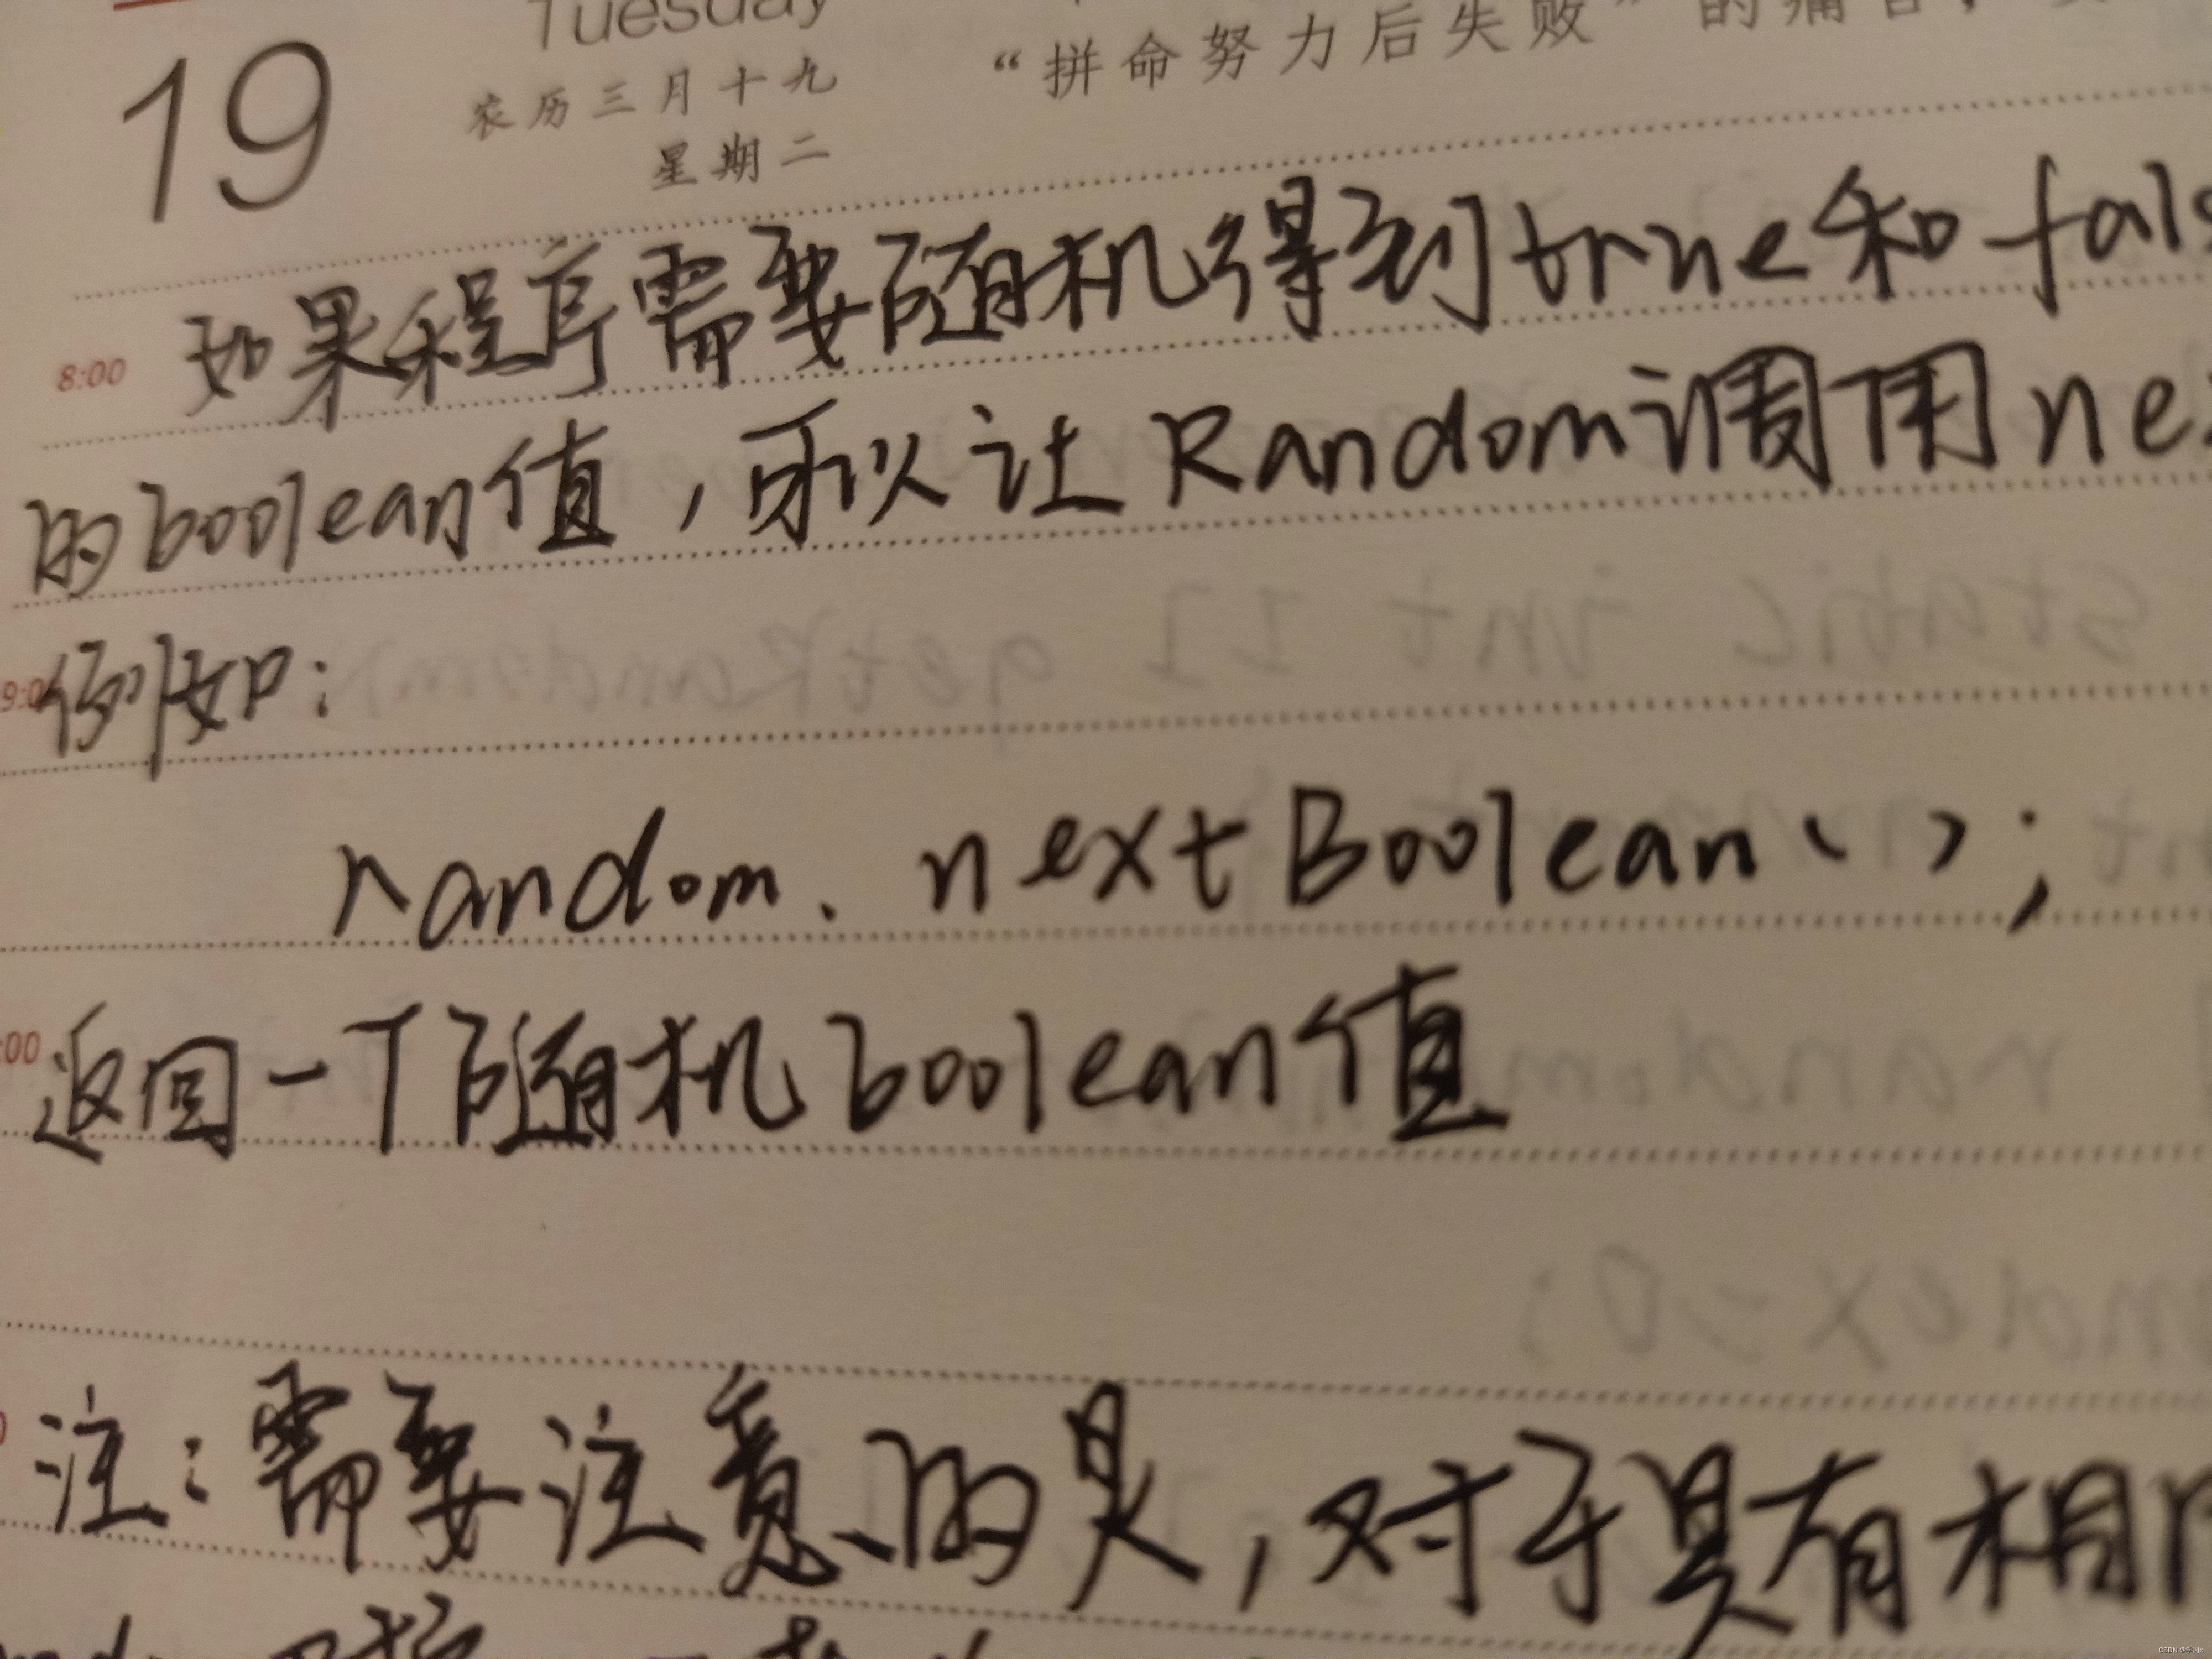 19
Tuesday
农历三月十九
星期二
“拼命努力后失败”的痛苦，
8:00 如果程序需要随机得到true和fals
的boolean值，可以让Random调用ne
例如：
random.nextBoolean();
返回一个随机boolean值
注：需要注意的是，对于具有相
CSDN @学习